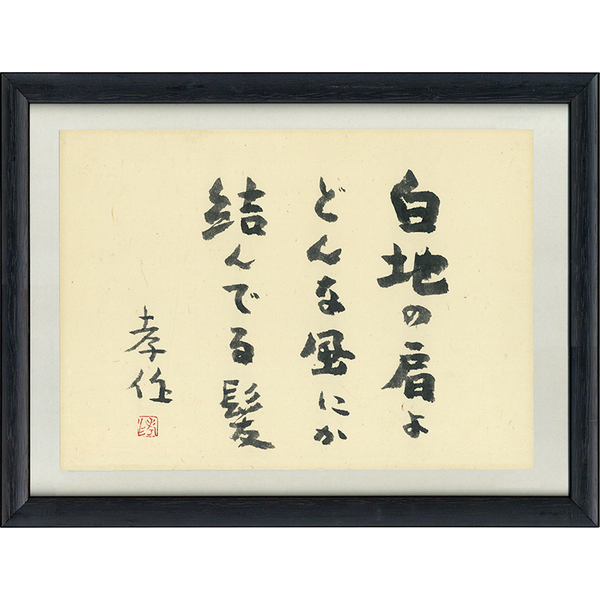 白地の肩よ
どんな風にか
結んでる髪
孝作